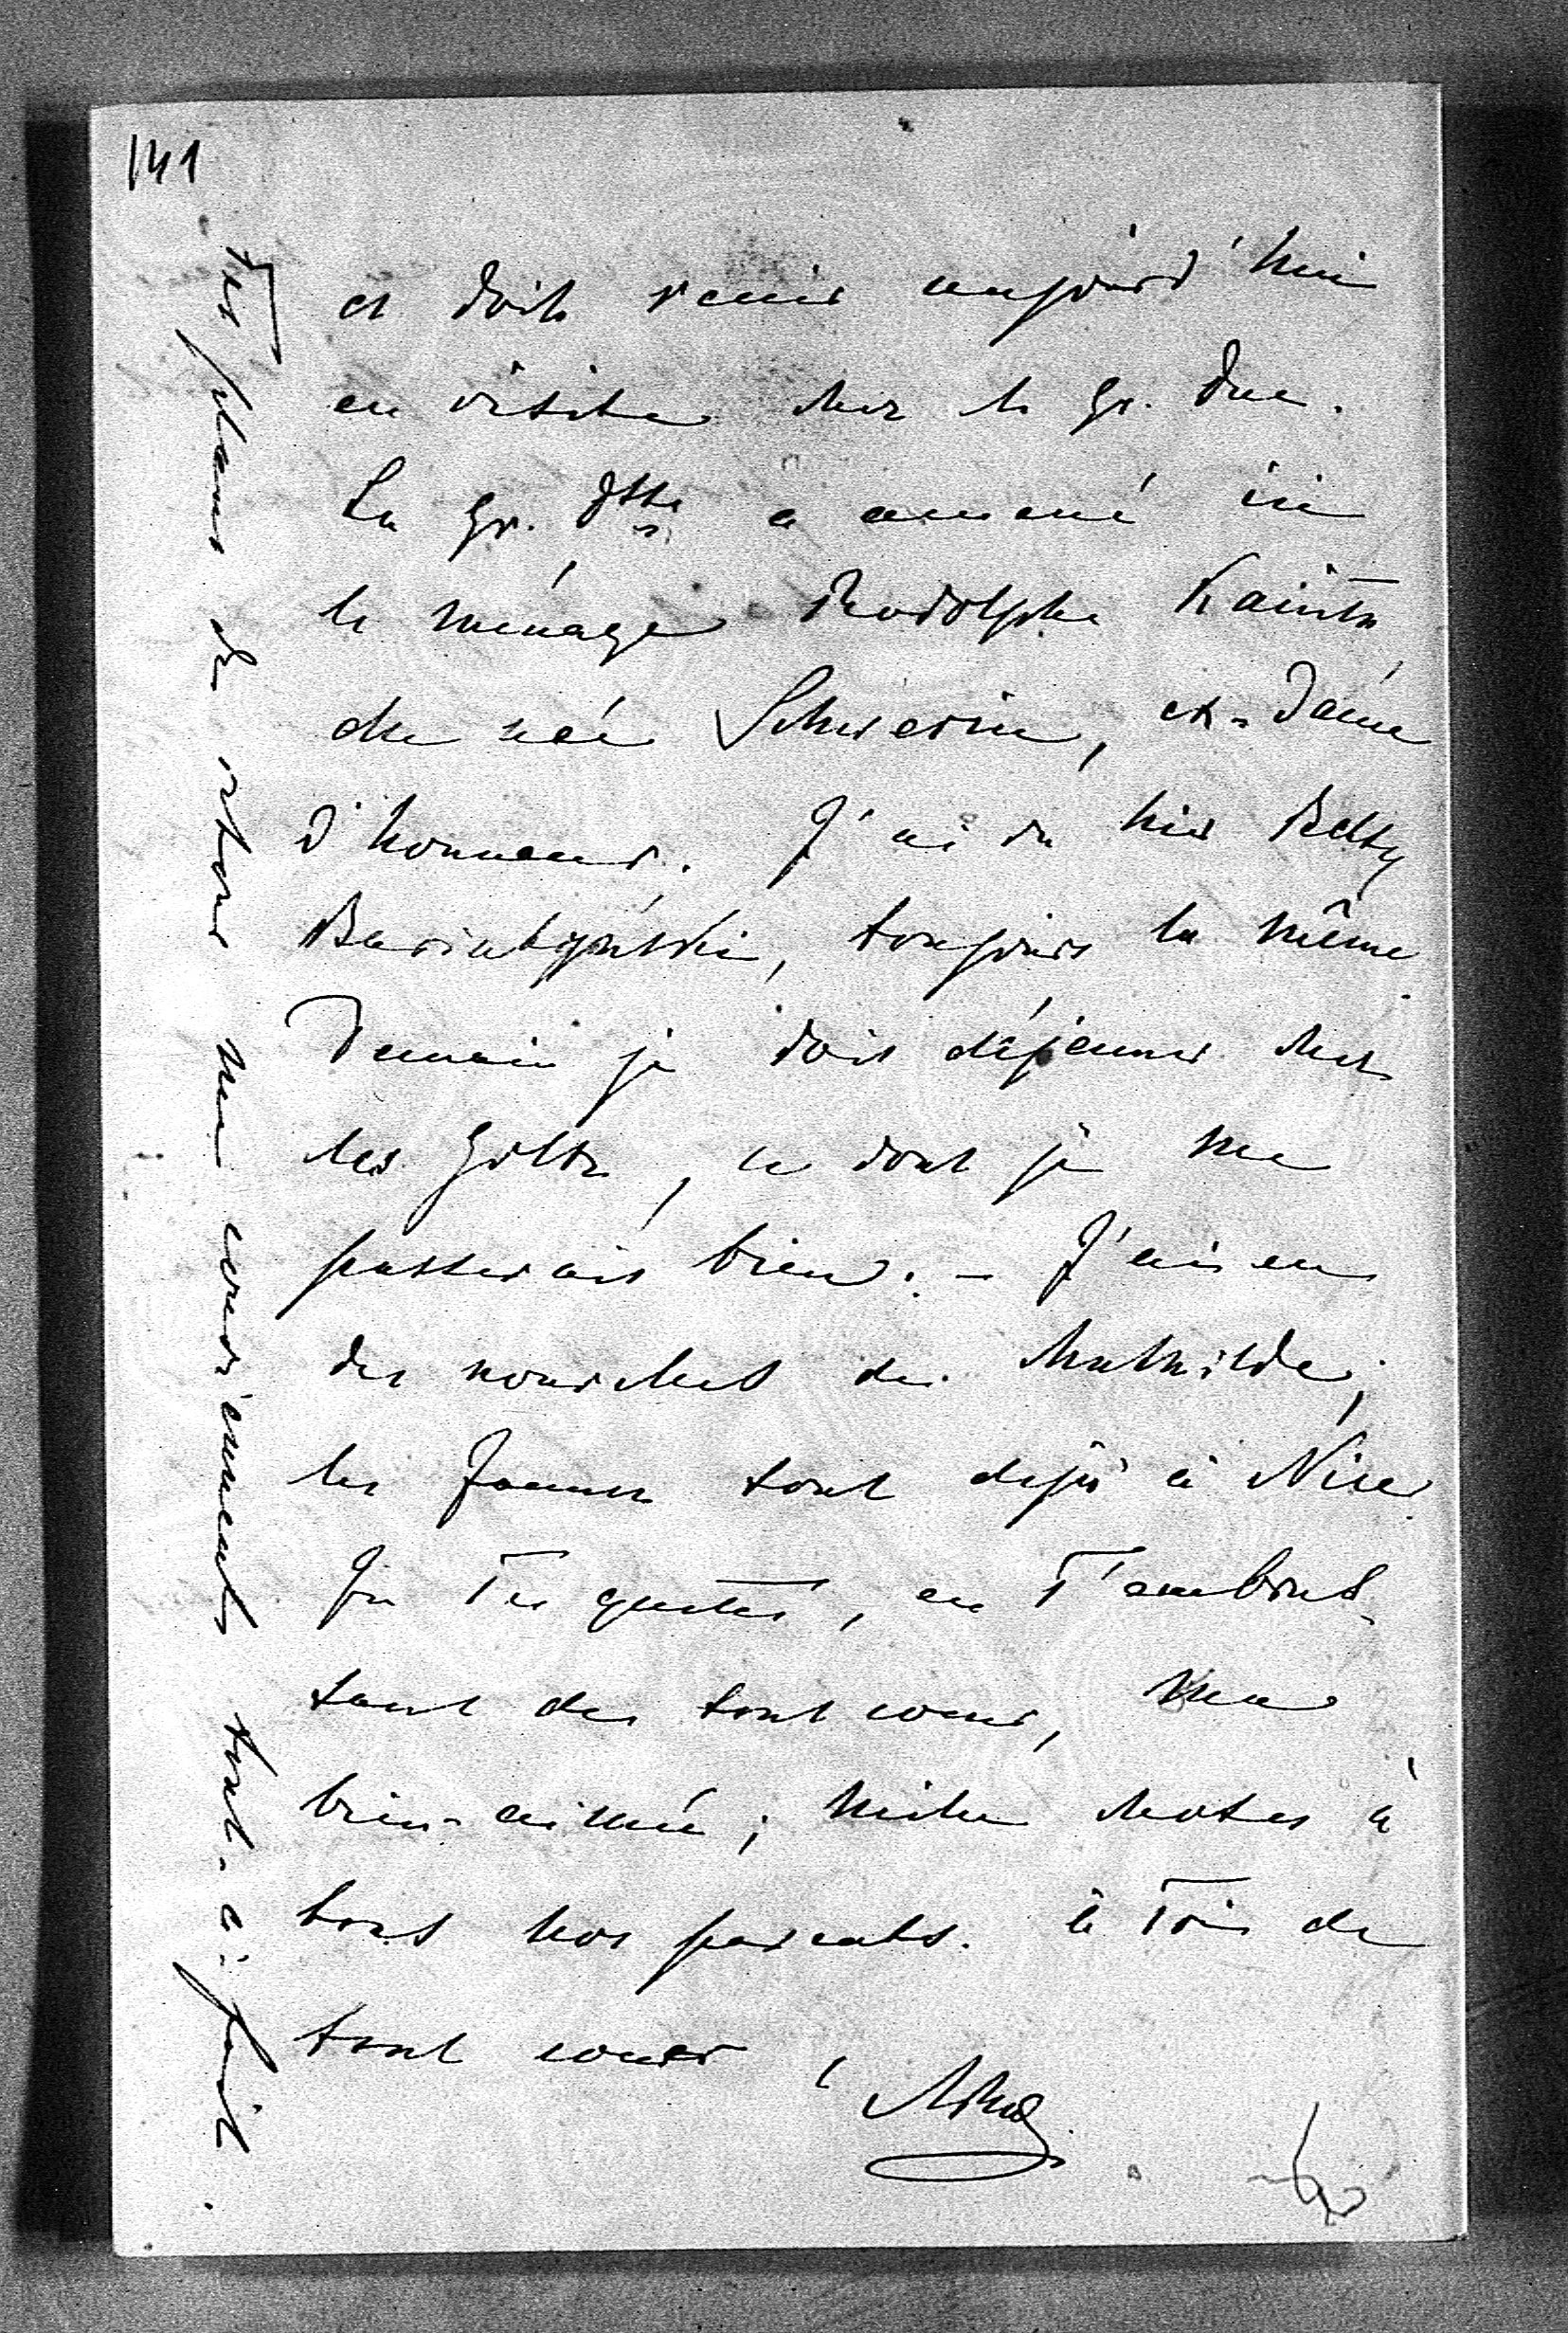 141
et doit venir aujourd'hui
en visite chez le gr. Duc.
La gr. Dsse a amené ici
le ménage Rodolphe Kanitz,
elle née Schwerin, ex-dame
d'honneur. J'ai vu hier Betsy
Bariatynski, toujours la même.
Demain je dois déjeuner chez
les Goltz, ce dont je me
passerais bien. – J'ai eu
des nouvelles de Mathilde,
les sont déjà à Nice.
Je Te quitte, en T'embras-
sant de tout cœur, ma
bien-aimée; mille choses à
tous nos parents. à Toi de
tout cœur
Tes plans de retour me conviennent tout-à-fait.